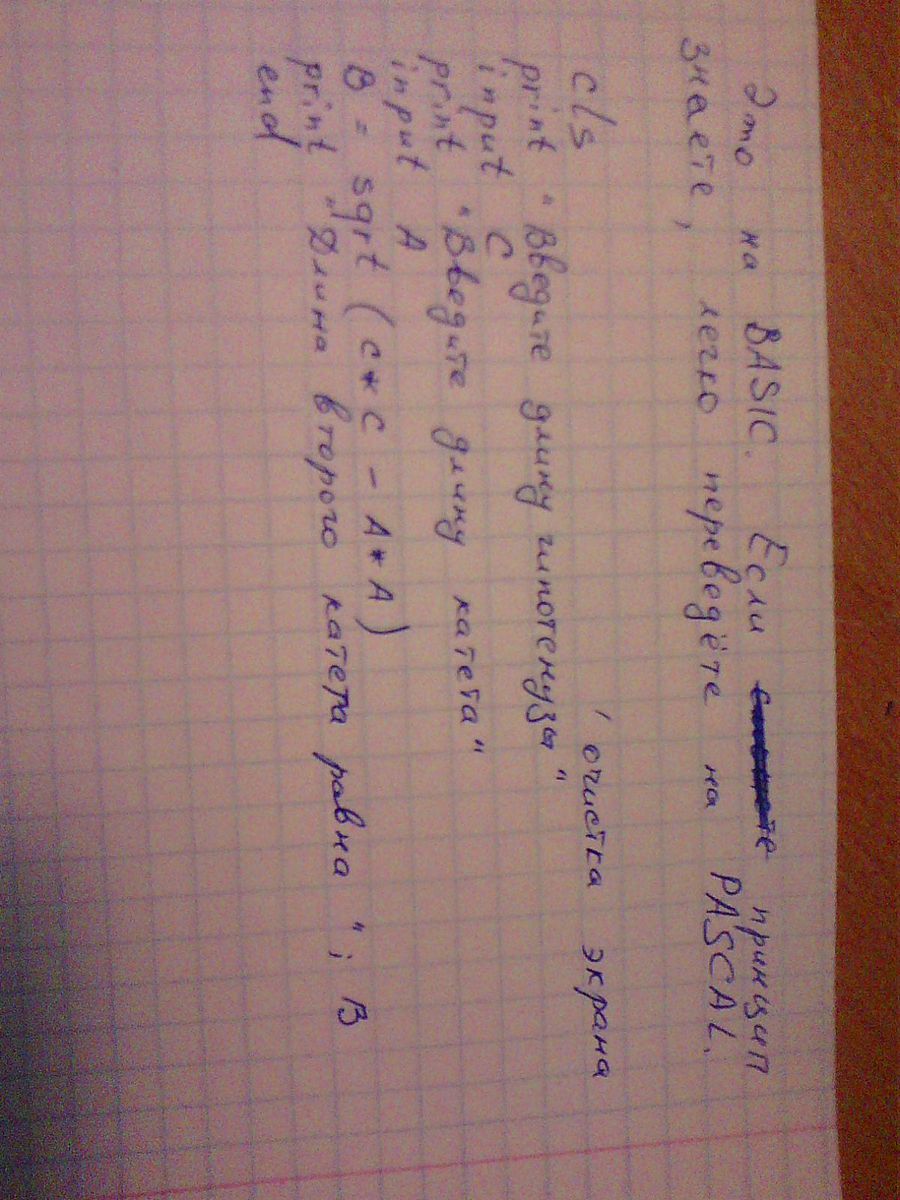 Это на BASIC. Если принцип
знаете, легко переведёте на PASCAL.
cls ' очистка экрана
print "Введите длину гипотенузы"
input C
print "Введите длину катета"
input A
B = sqrt (C*C - A*A)
print "Длина второго катета равна "; B
end